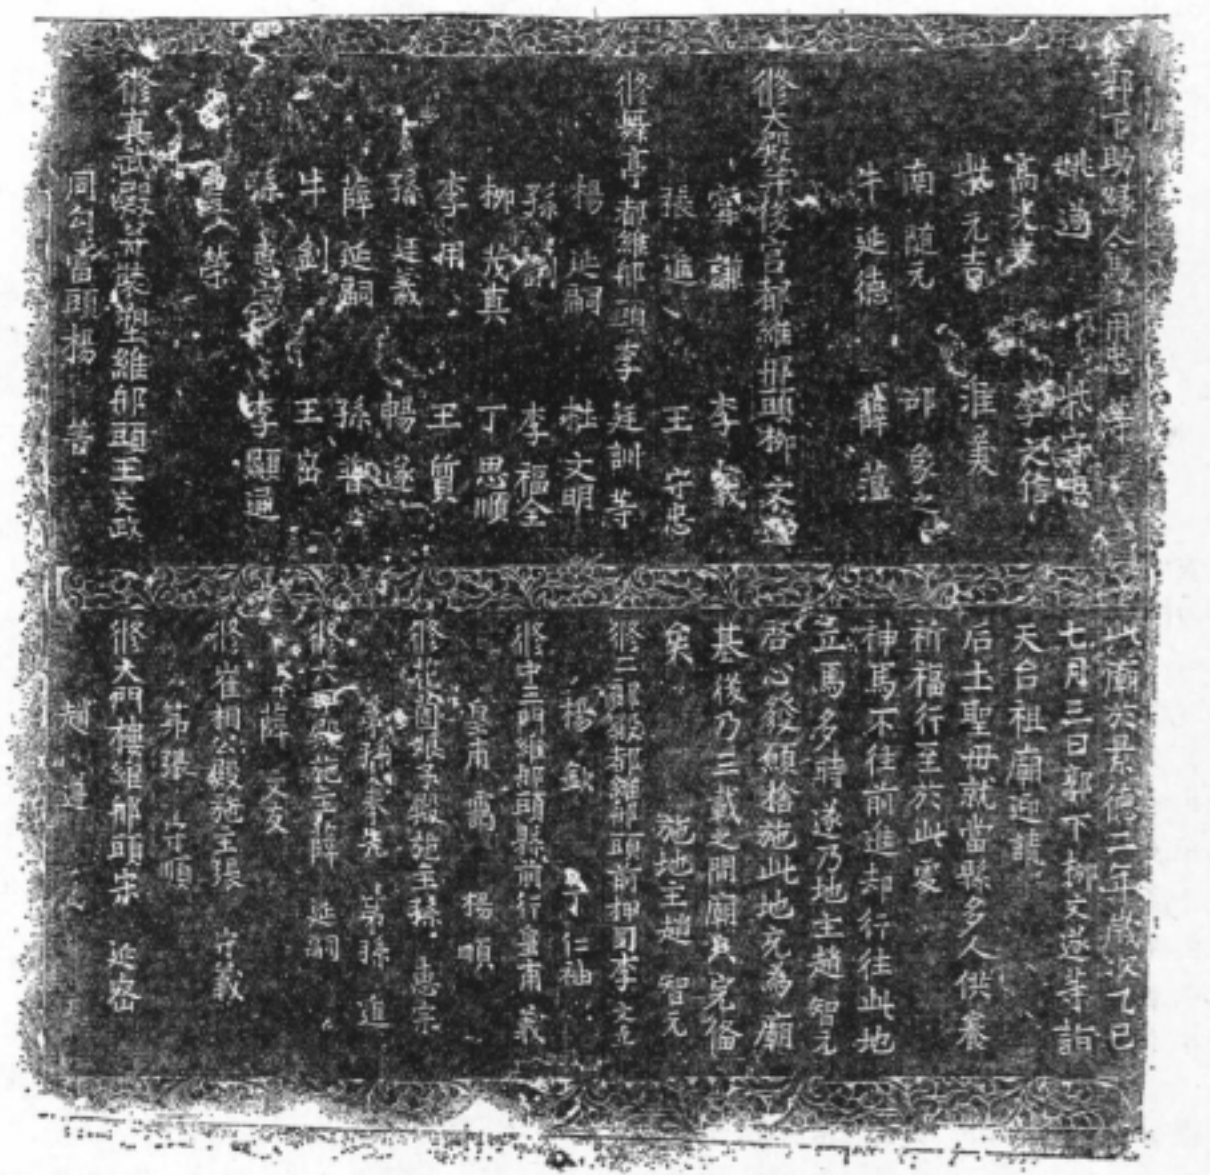 郭下助緣人
姚邁
高光美 李文信
柴元吉 淮美
南隨元 邵象之
牛延德 薛
修大殿并後宮都維那頭柳文遂
甯謙 李義
張進 王守忠
修舞亭都維那頭李廷訓等
楊延嗣 杜文明
孫劊 李福全
柳茂真 丁思順
李用 王質
孫廷義 暢遂
薛延嗣 孫普
牛劊 王密
孫惠 李顯通
榮
修真武殿并裝塑維那頭王文政
同勾當頭楊
此廟於景德二年歲次乙巳
七月三日郭下柳文遂等詣
天台祖廟迎請
后土聖母就當縣多人供養
祈福行至於此處
神馬不往前進却行往此地
立馬多時遂乃地主趙智元
啓心發願捨施此地充為廟
基後乃三載之間廟與完備
矣 施地主趙智元
修二郎殿都維那頭前押司李文
楊欽 丁仁袖
修中三門維那頭縣前行皇甫義
皇甫 楊順
修花園娘子殿施主孫惠宗
弟孫孝先 弟孫進
修六甲殿施主薛延嗣
薛文友
修崔相公殿施主張守義
弟張守順
修大門樓維那頭宋延密
趙